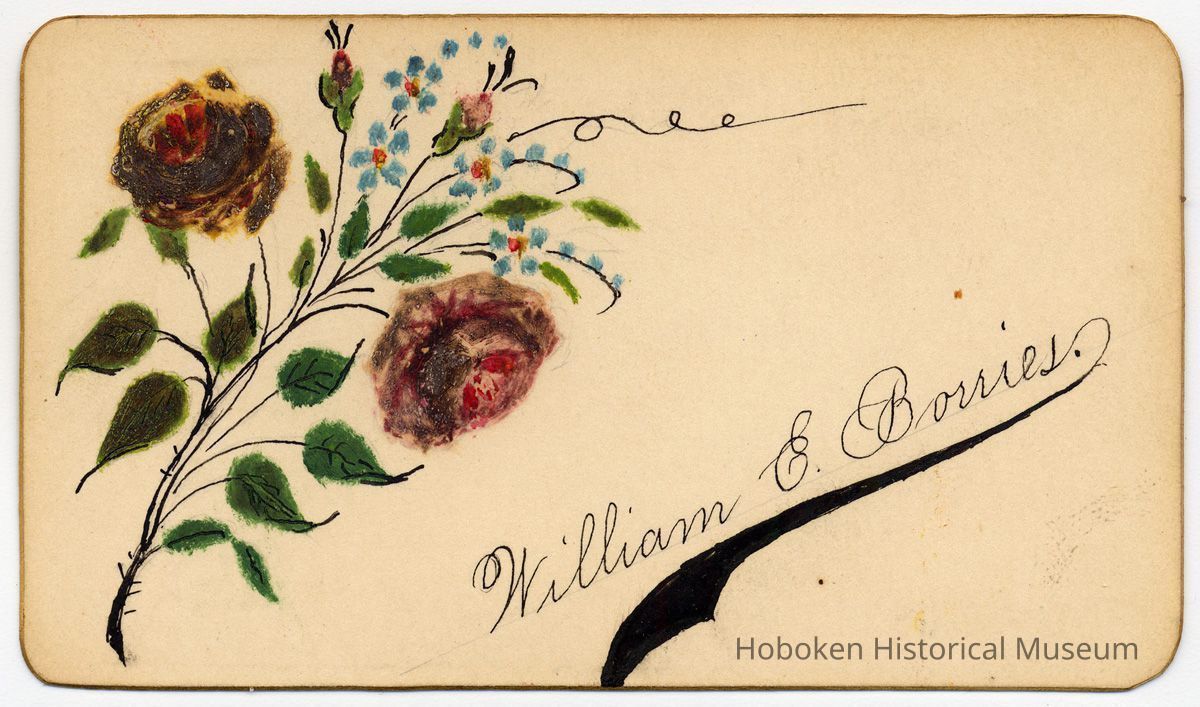 William E. Borries.
Hoboken Historical Museum